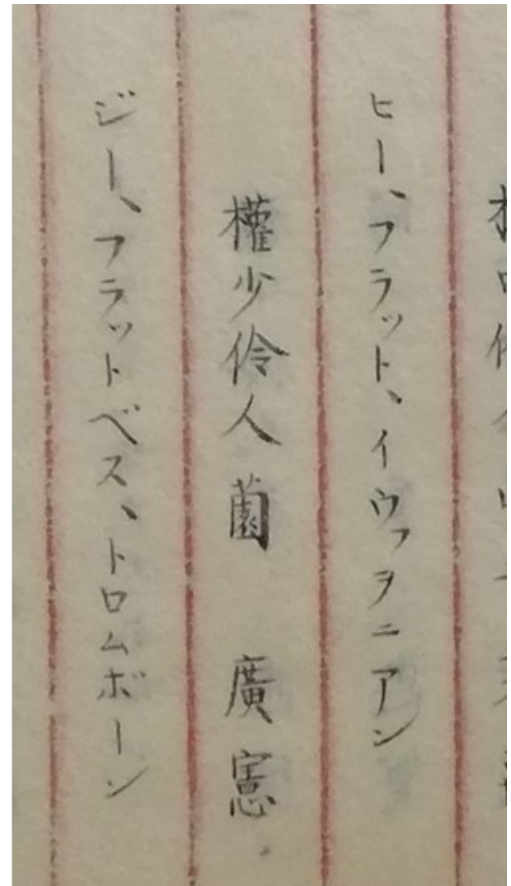 ヒー、フラット、イウフヲニアン
權少伶人薗　廣憲
ジー、フラットベス、トロムボーン